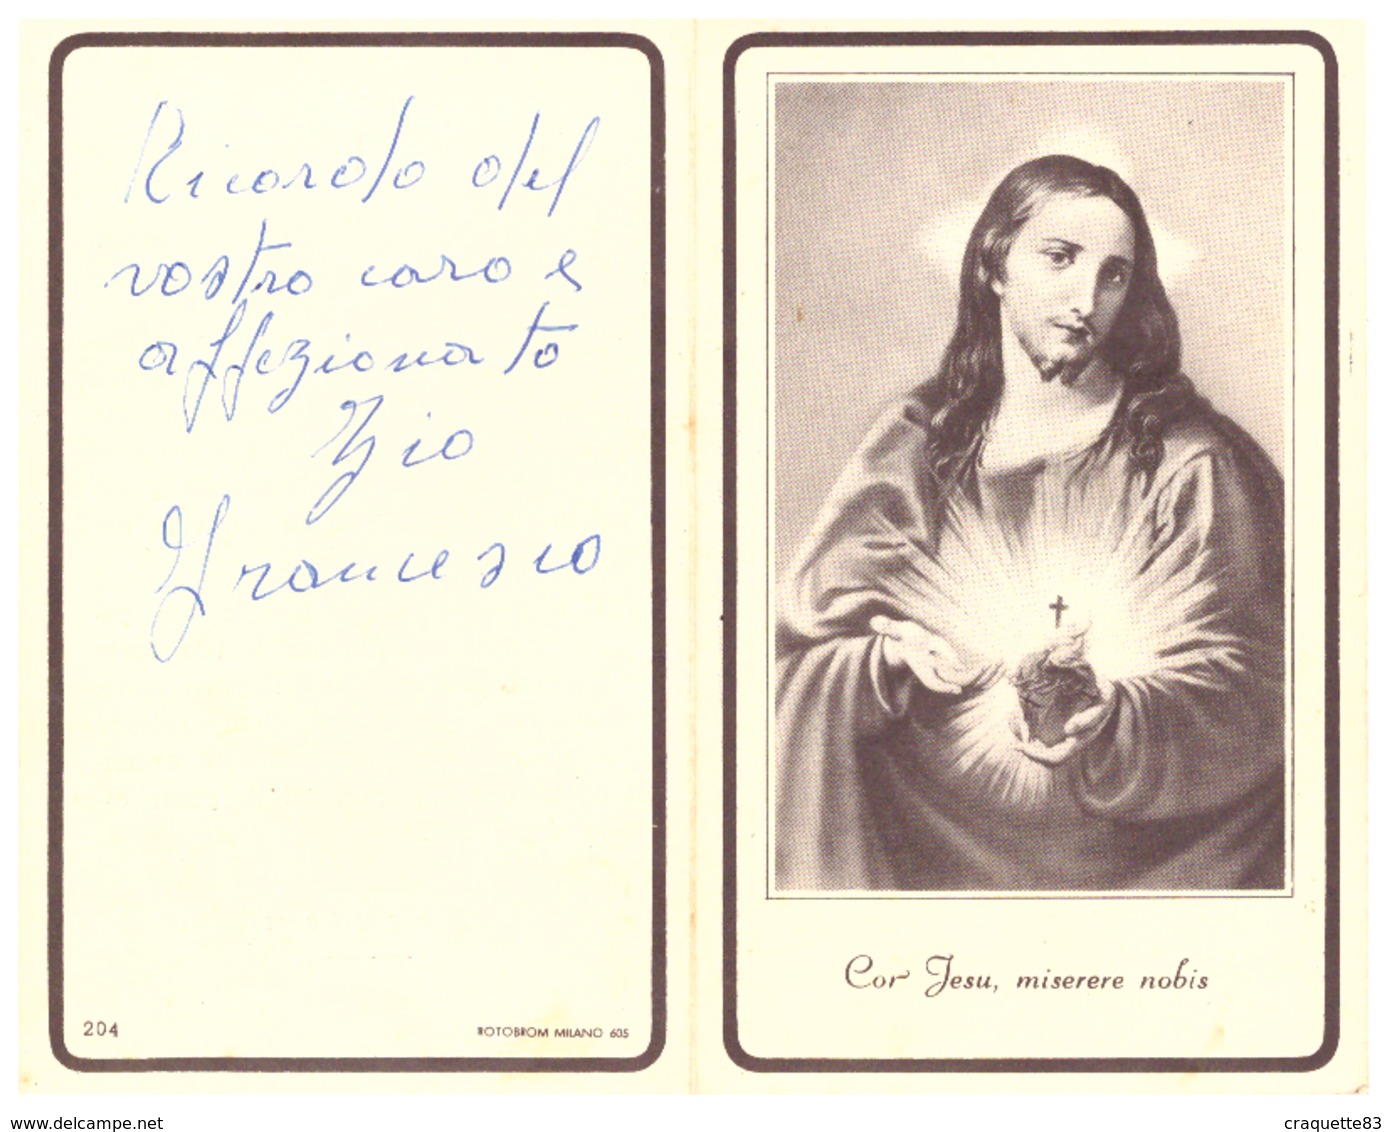 Ricordo del
vostro caro e
affezionato
Zio
Francesco
204
ROTOBROM MILANO 605
Cor Jesu, miserere nobis
www.delcampe.net
craquette83